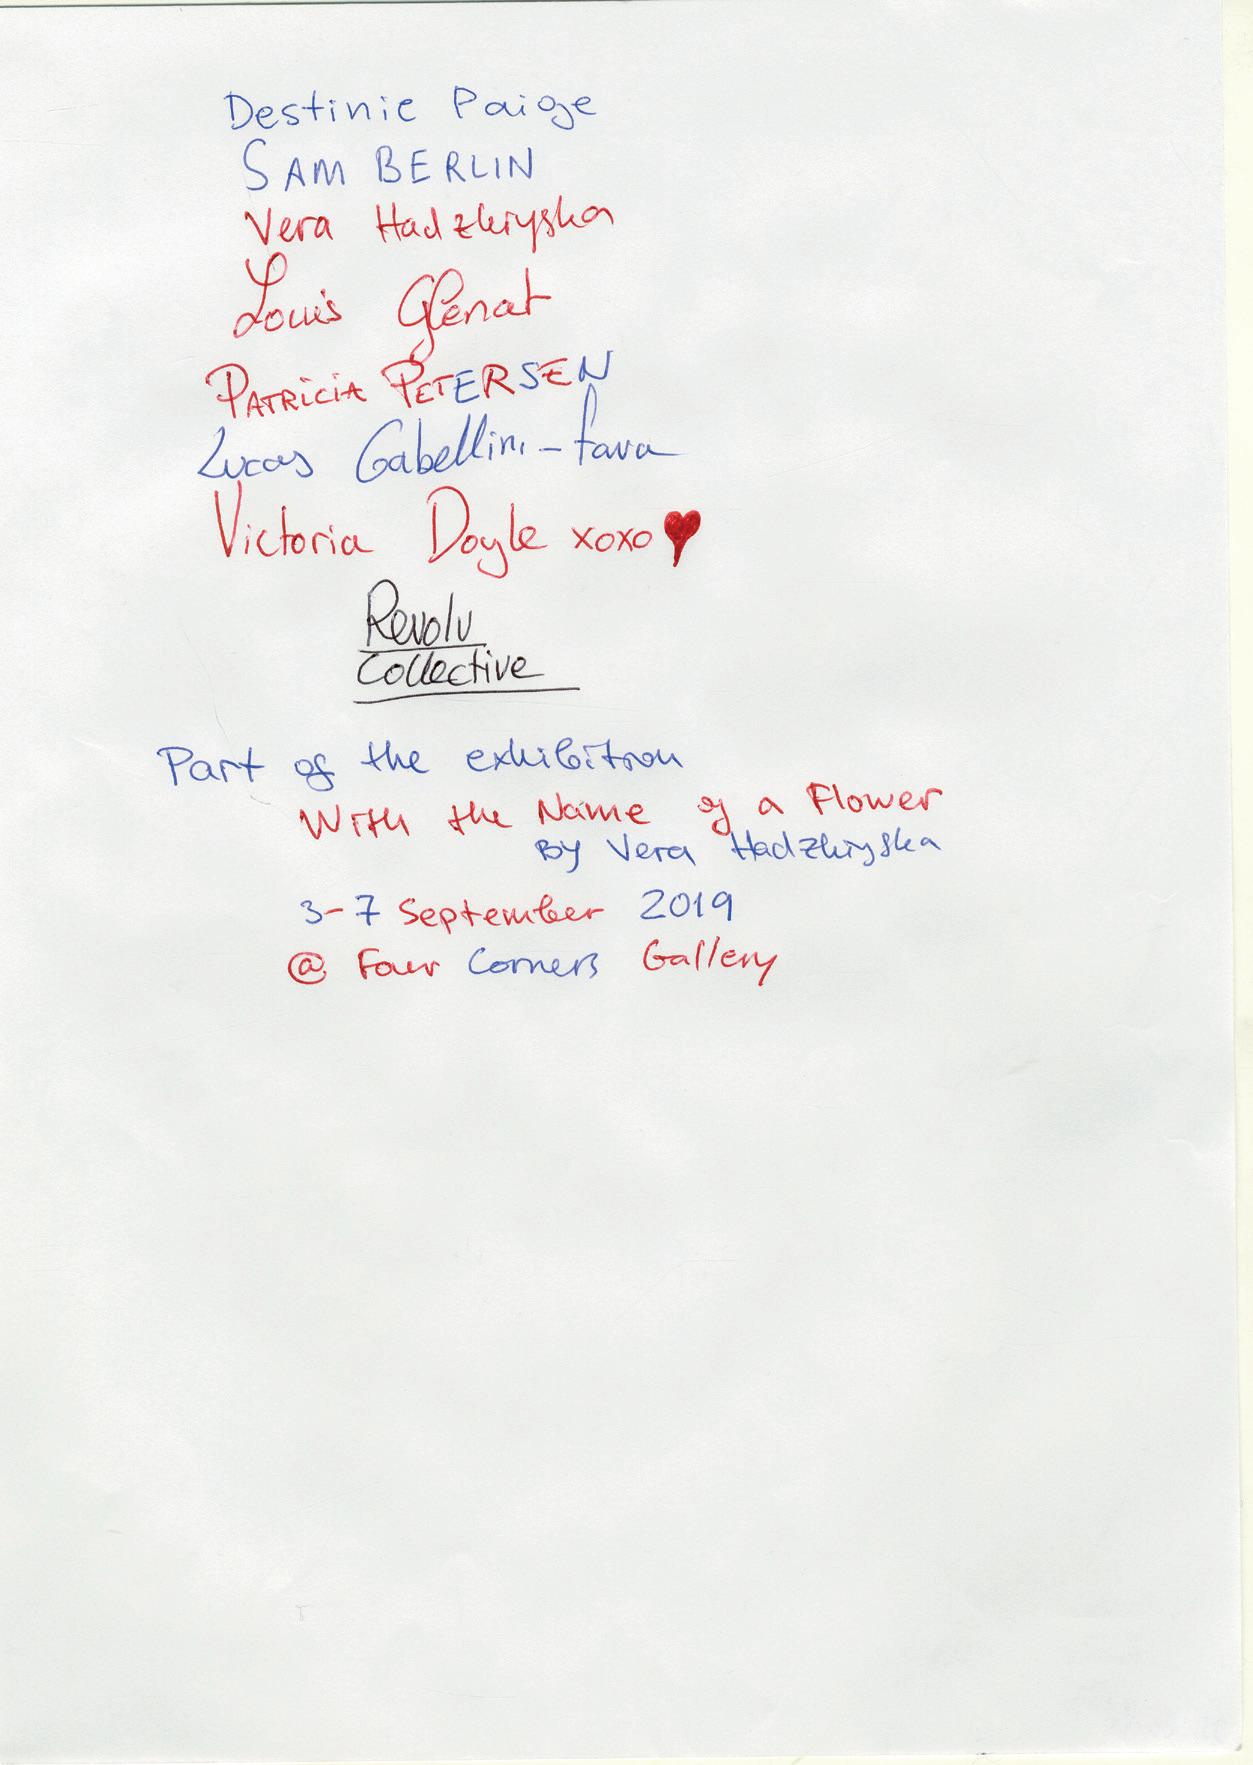 Destinie Paige
SAM BERLIN
Vera Hadzhiyska
Louis Glénat
PATRICIA PETERSEN
Lucas Gabellini-Fava
Victoria Doyle xoxo♥
Revolv
Collective
Part of the exhibition
With the Name of a Flower
By Vera Hadzhiyska
3-7 September 2019
@ Four Corners Gallery